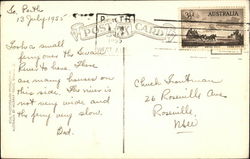 So. Perth
13 July 1955
Took a small
ferry over the Swan
River to here. There
are many houses on
this side. The river is
not very wide and the
ferry very slow.
Dad.
POST CARD
AUSTRALIA
3½d
Chuck
26 Roseville Ave
Roseville
NSW